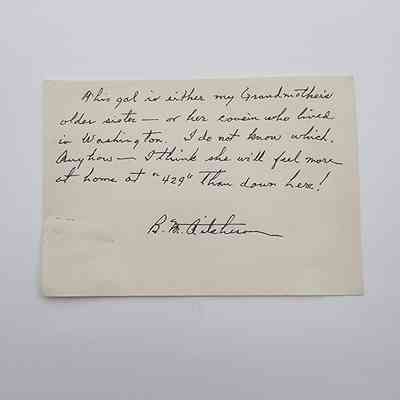 This gal is either my Grandmother's
older sister — or her cousin who lived
in Washington. I do not know which.
Anyhow — I think she will feel more
at home at "429" than down here!
B. M. Aitcheson